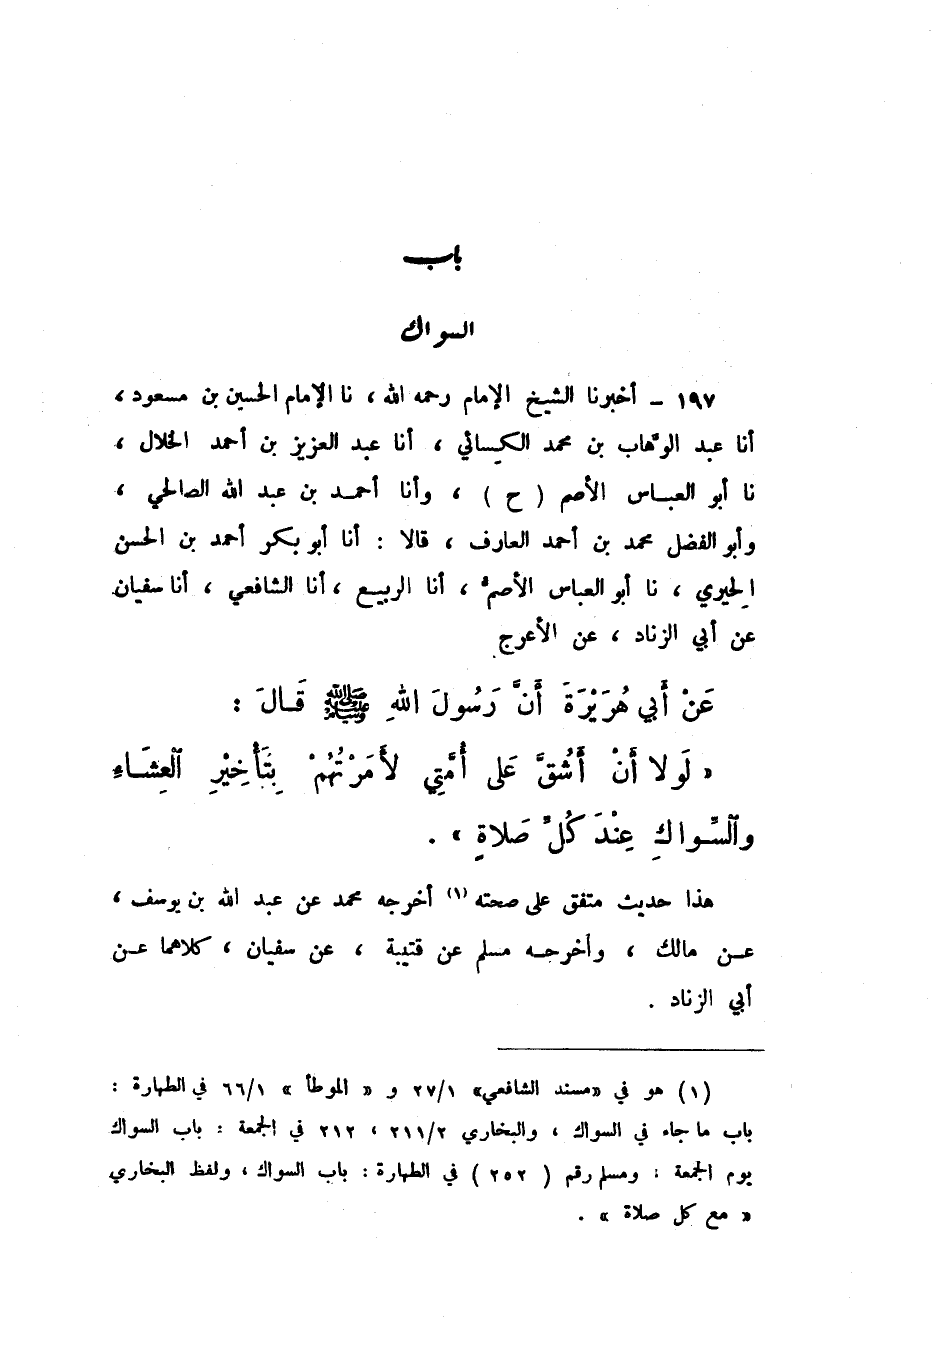 باب
السواك
١٩٧ – أخبرنا الشيخ الإمام رحمه الله ، نا الإمام الحسين بن مسعود ،
أنا عبد الوهاب بن محمد الكسائي ، أنا عبد العزيز بن أحمد الخلال ،
نا أبو العباس الأصم ( ح ) ، وأنا أحمد بن عبد الله الصالحي ،
وأبو الفضل محمد بن أحمد العارف ، قالا : أنا أبو بكر أحمد بن الحسن
الحيري ، نا أبو العباس الأصم ، أنا الربيع ، أنا الشافعي ، أنا سفيان
عن أبي الزناد ، عن الأعرج
عَنْ أَبي هُرَيْرَةَ أَنَّ رَسُولَ اللهِ ﷺ قَالَ :
« لَولا أَنْ أَشُقَّ عَلى أُمَّتِي لأَمَرْتُهُمْ بِتَأْخِيْرِ ٱلْعِشَاءِ
وٱلسِّواكِ عِنْدَ كُلِّ صَلاةٍ » .
هذا حديث متفق على صحته (١) أخرجه محمد عن عبد الله بن يوسف ،
عن مالك ، وأخرجه مسلم عن قتيبة ، عن سفيان ، كلاهما عن
أبي الزناد .
(١) هو في «مسند الشافعي» ٢٧/١ و « الموطأ » ٦٦/١ في الطهارة :
باب ما جاء في السواك ، والبخاري ٢١١/٢ ، ٢١٢ في الجمعة : باب السواك
يوم الجمعة ؛ ومسلم رقم ( ٢٥٢ ) في الطهارة : باب السواك ، ولفظ البخاري
« مع كل صلاة » .